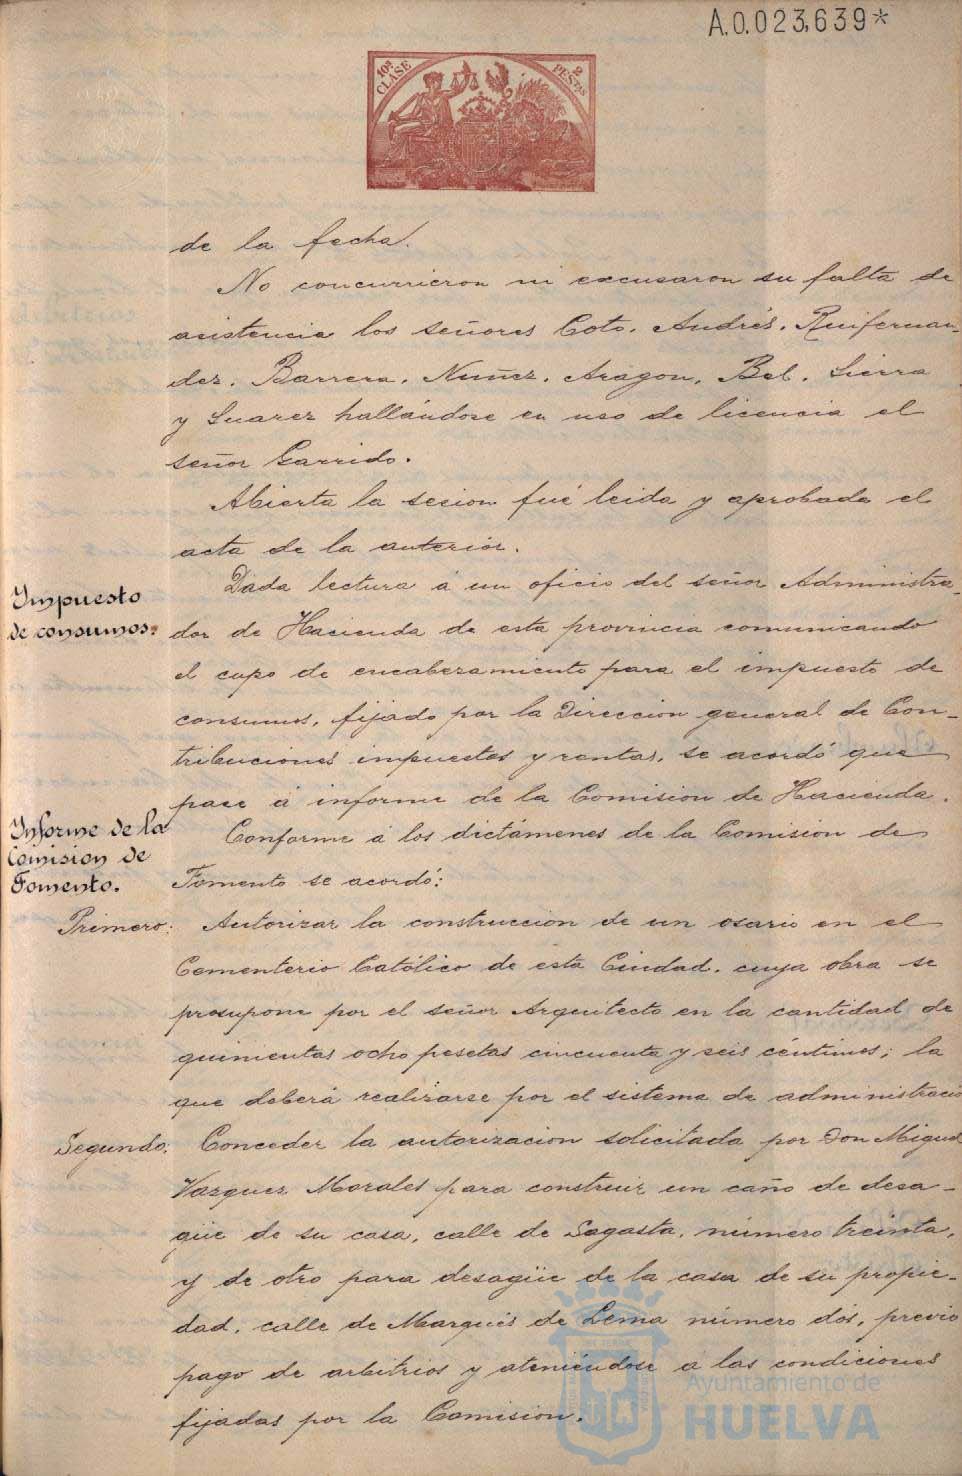 A.0.023,639*
10ª CLASE
2 PESTAS
de la fecha.
No concurrieron ni excusaron su falta de
asistencia los señores Coto, Andrés, Ruifernan-
dez, Barrera, Nuñez, Aragon, Bel, Sierra
y Suarez hallándose en uso de licencia el
señor Garrido.
Abierta la secion fué leida y aprobada el
acta de la anterior.
Impuesto
de consumos.
Dada lectura á un oficio del señor Administra-
dor de Hacienda de esta provincia comunicando
el cupo de encabezamiento para el impuesto de
consumos, fijado por la Direccion general de Con-
tribuciones impuestos y rentas, se acordó que
pase á informe de la Comision de Hacienda.
Informe de la
Comision de
Fomento.
Conforme á los dictámenes de la Comision de
Fomento se acordó:
Primero: Autorizar la construccion de un osario en el
Cementerio Católico de esta Ciudad, cuya obra se
prosupone por el señor Arquitecto en la cantidad de
quinientas ocho pesetas cincuenta y seis céntimos; la
que deberá realizarse por el sistema de administració
Segundo: Conceder la autorizacion solicitada por Don Miguel
Vazquez Morales para construir un caño de desa-
güe de su casa, calle de Sagasta, número treinta,
y de otro para desagüe de la casa de su propie-
dad, calle de Marqués de Lema número dós, previo
pago de arbitrios y ateniéndose á las condiciones
fijadas por la Comision.
Ayuntamiento de
HUELVA